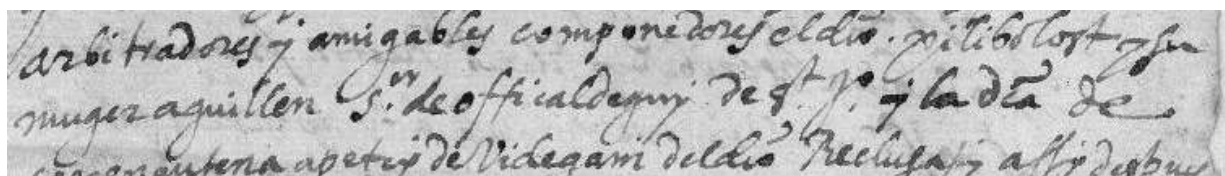 arbitradores y amigables componedores el dho. philibolost y su
muger a guillen S.or de officaldeguy de st. Po. y la dha de
a petry de Videgain del dho Reclusa y assy despues